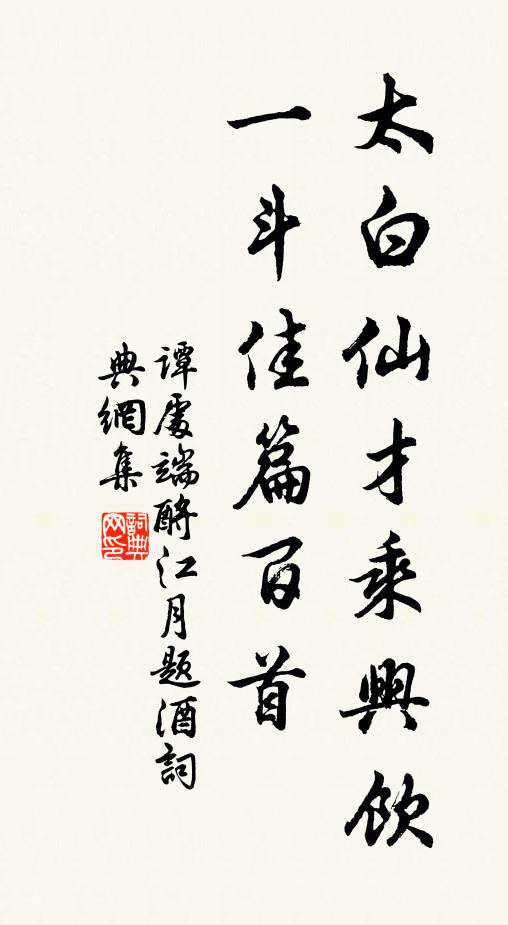 太白仙才乘興飲
一斗佳篇百首
谭處端酹江月题酒詞
典網集
詞典网印